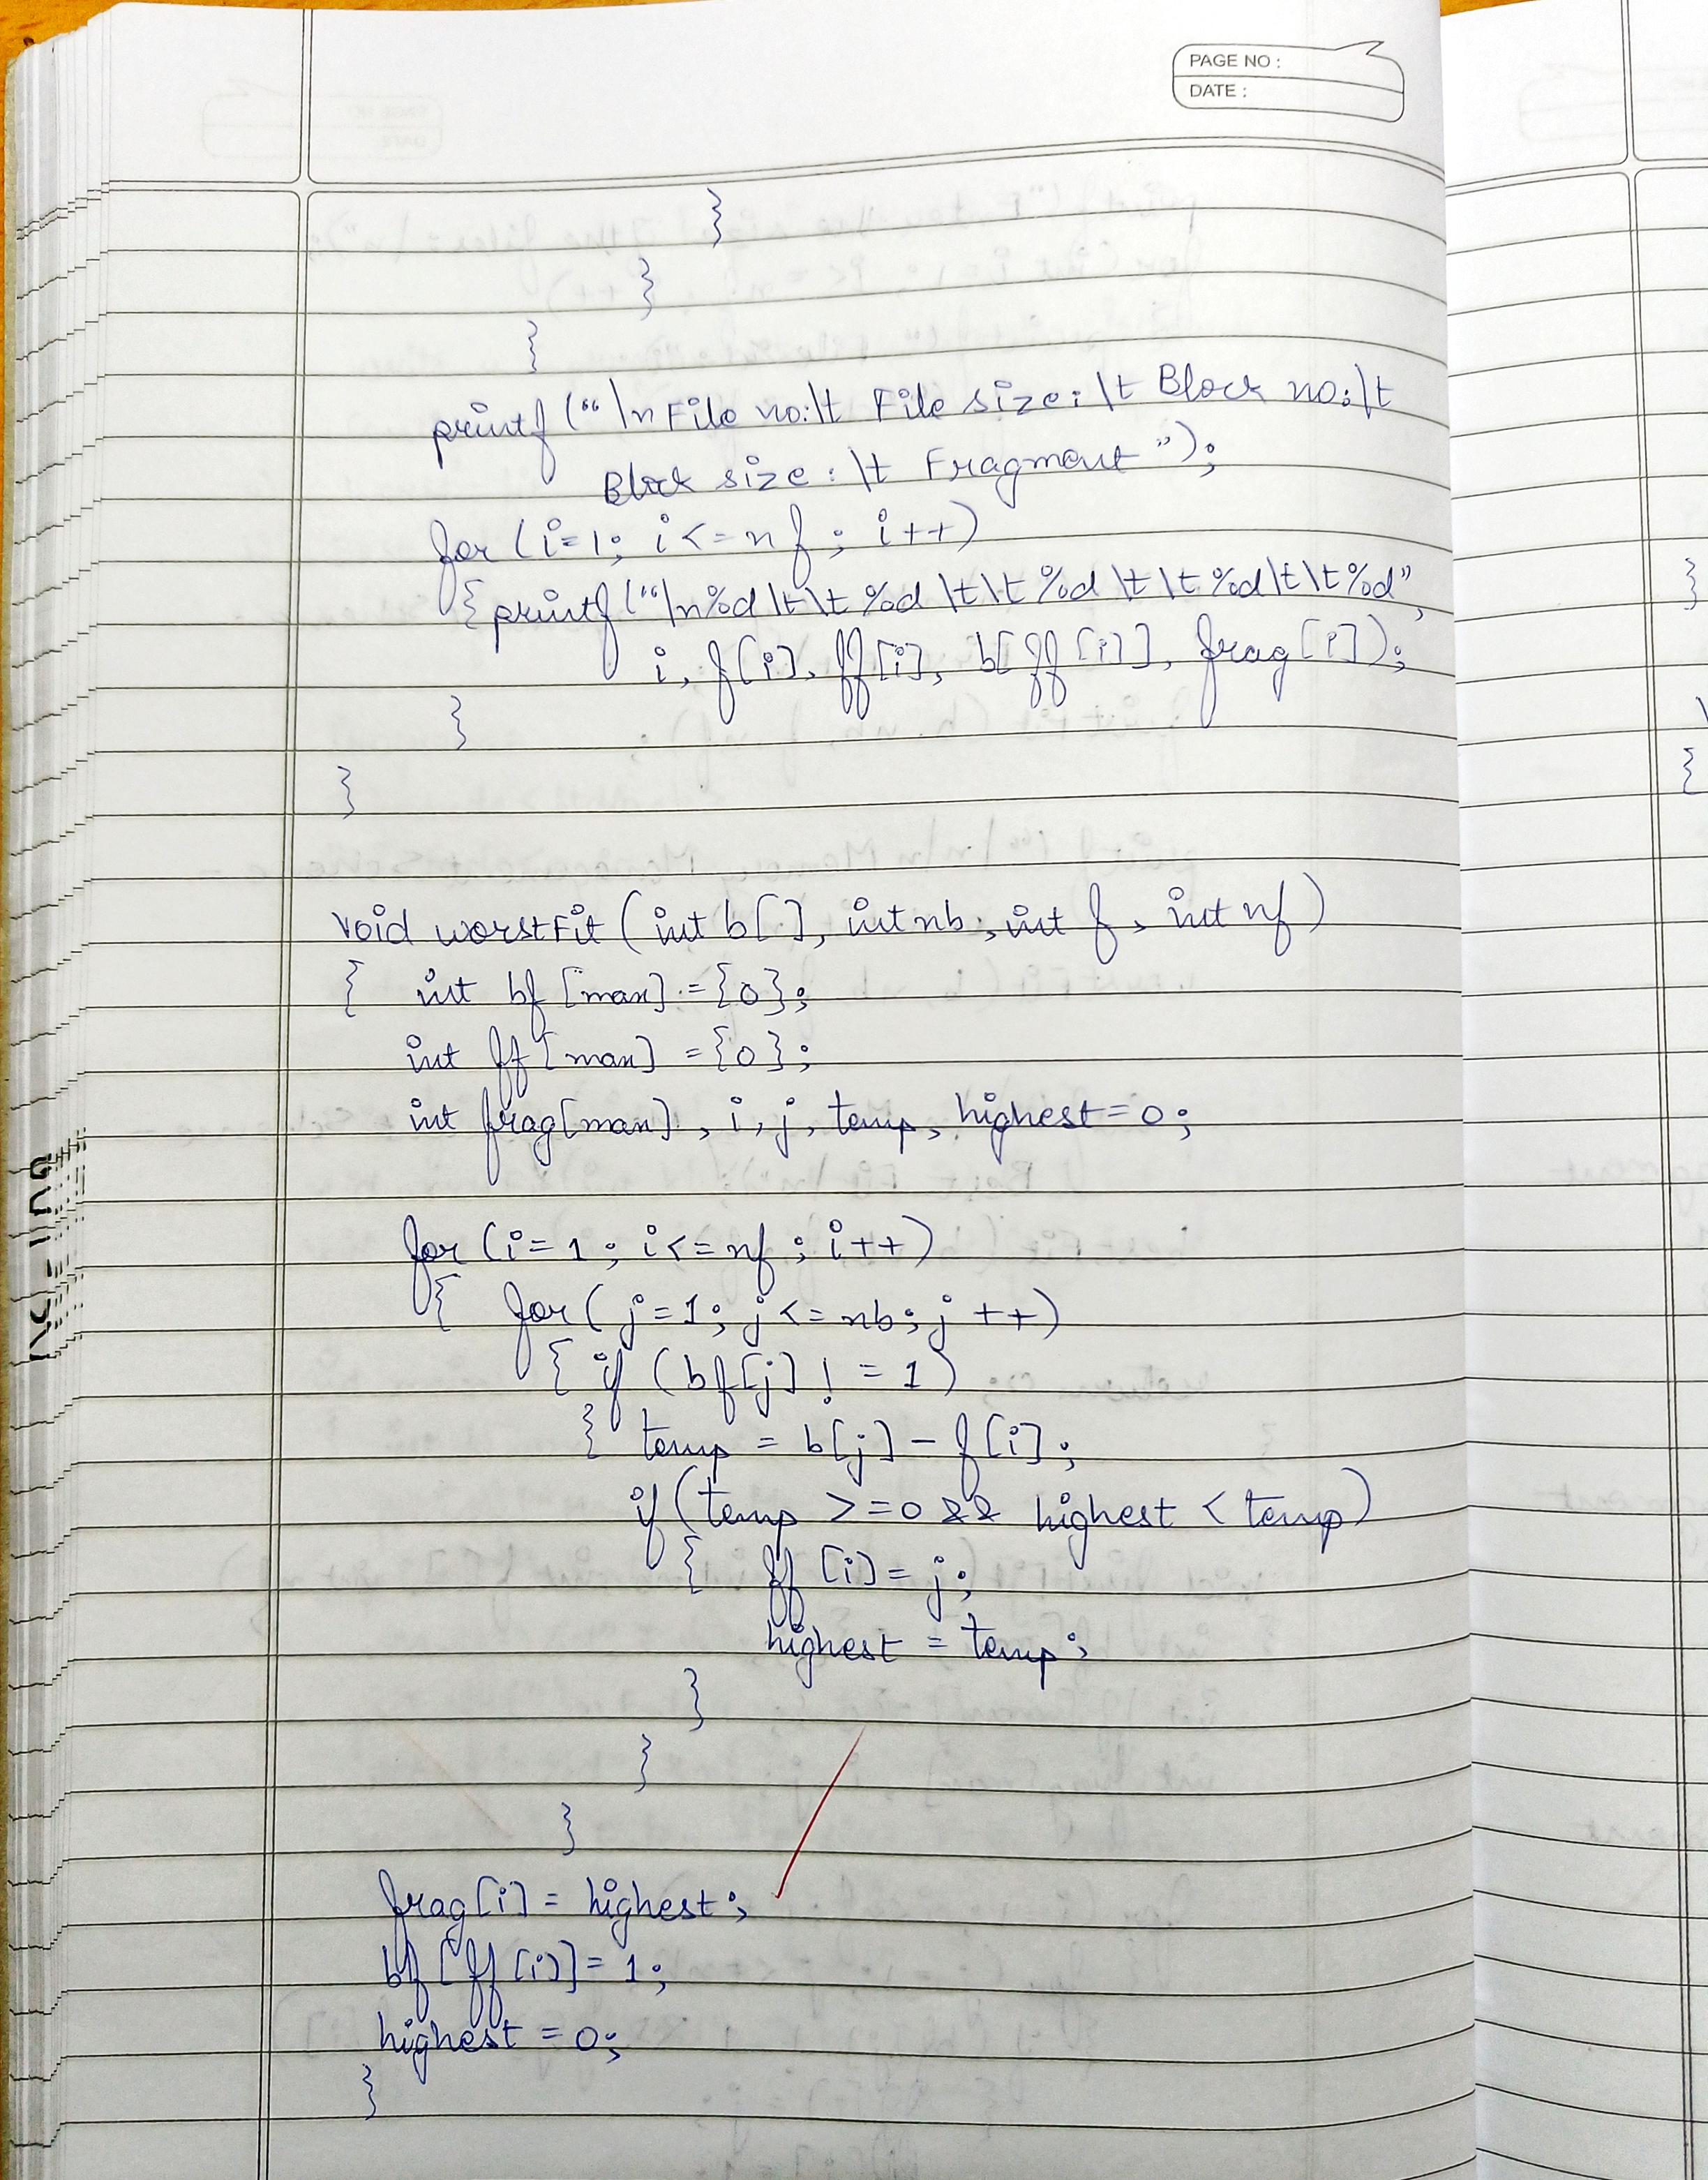 PAGE NO :
DATE :
}
}
}
printf (“ \n File no:\t File size:\t Block no:\t
Block size: \t Fragment ”);
for (i=1; i<=nf; i++)
{ printf (“\n%d\t\t%d\t\t%d\t\t%d\t\t%d”,
i, f[i], ff[i], b[ff[i]], frag[i]);
}
}
void worstFit (int b[], int nb, int f, int nf)
{ int bf [max] = {0};
int ff [max] = {0};
int frag[max], i, j, temp, highest=0;
for (i=1; i<=nf; i++)
{ for (j=1; j<=nb; j++)
{ if (bf[j] != 1)
{ temp = b[j] - f[i];
if (temp >=0 && highest < temp)
{ ff [i] = j;
highest = temp;
}
}
}
frag[i] = highest;
bf [ff [i]] = 1;
highest = 0;
}
}
{